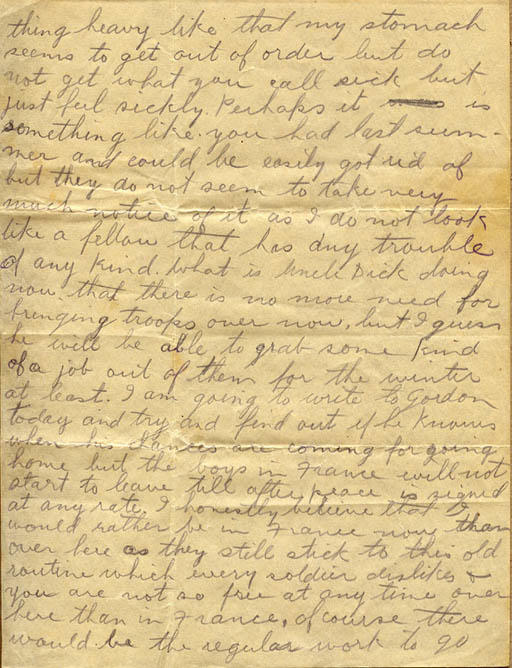 thing heavy like that my stomach
seems to get out of order but do
not get what you call sick but
just feel sickly. Perhaps it is
something like you had last sum-
mer and could be easily got rid of
but they do not seem to take very
much notice of it as I do not look
like a fellow that has any trouble
of any kind. What is Uncle Dick doing
now. that there is no more need for
bringing troops over now, but I guess
he will be able to grab some kind
of a job out of them for the winter
at least. I am going to write to Gordon
today and try and find out if he knows
when his chances are coming for going
home but the boys in France will not
start to leave till after peace is signed
at any rate. I honestly believe that I
would rather be in France now than
over here as they still stick to this old
routine which every soldier dislikes &
you are not so free at any time over
here than in France, of course there
would be the regular work to go